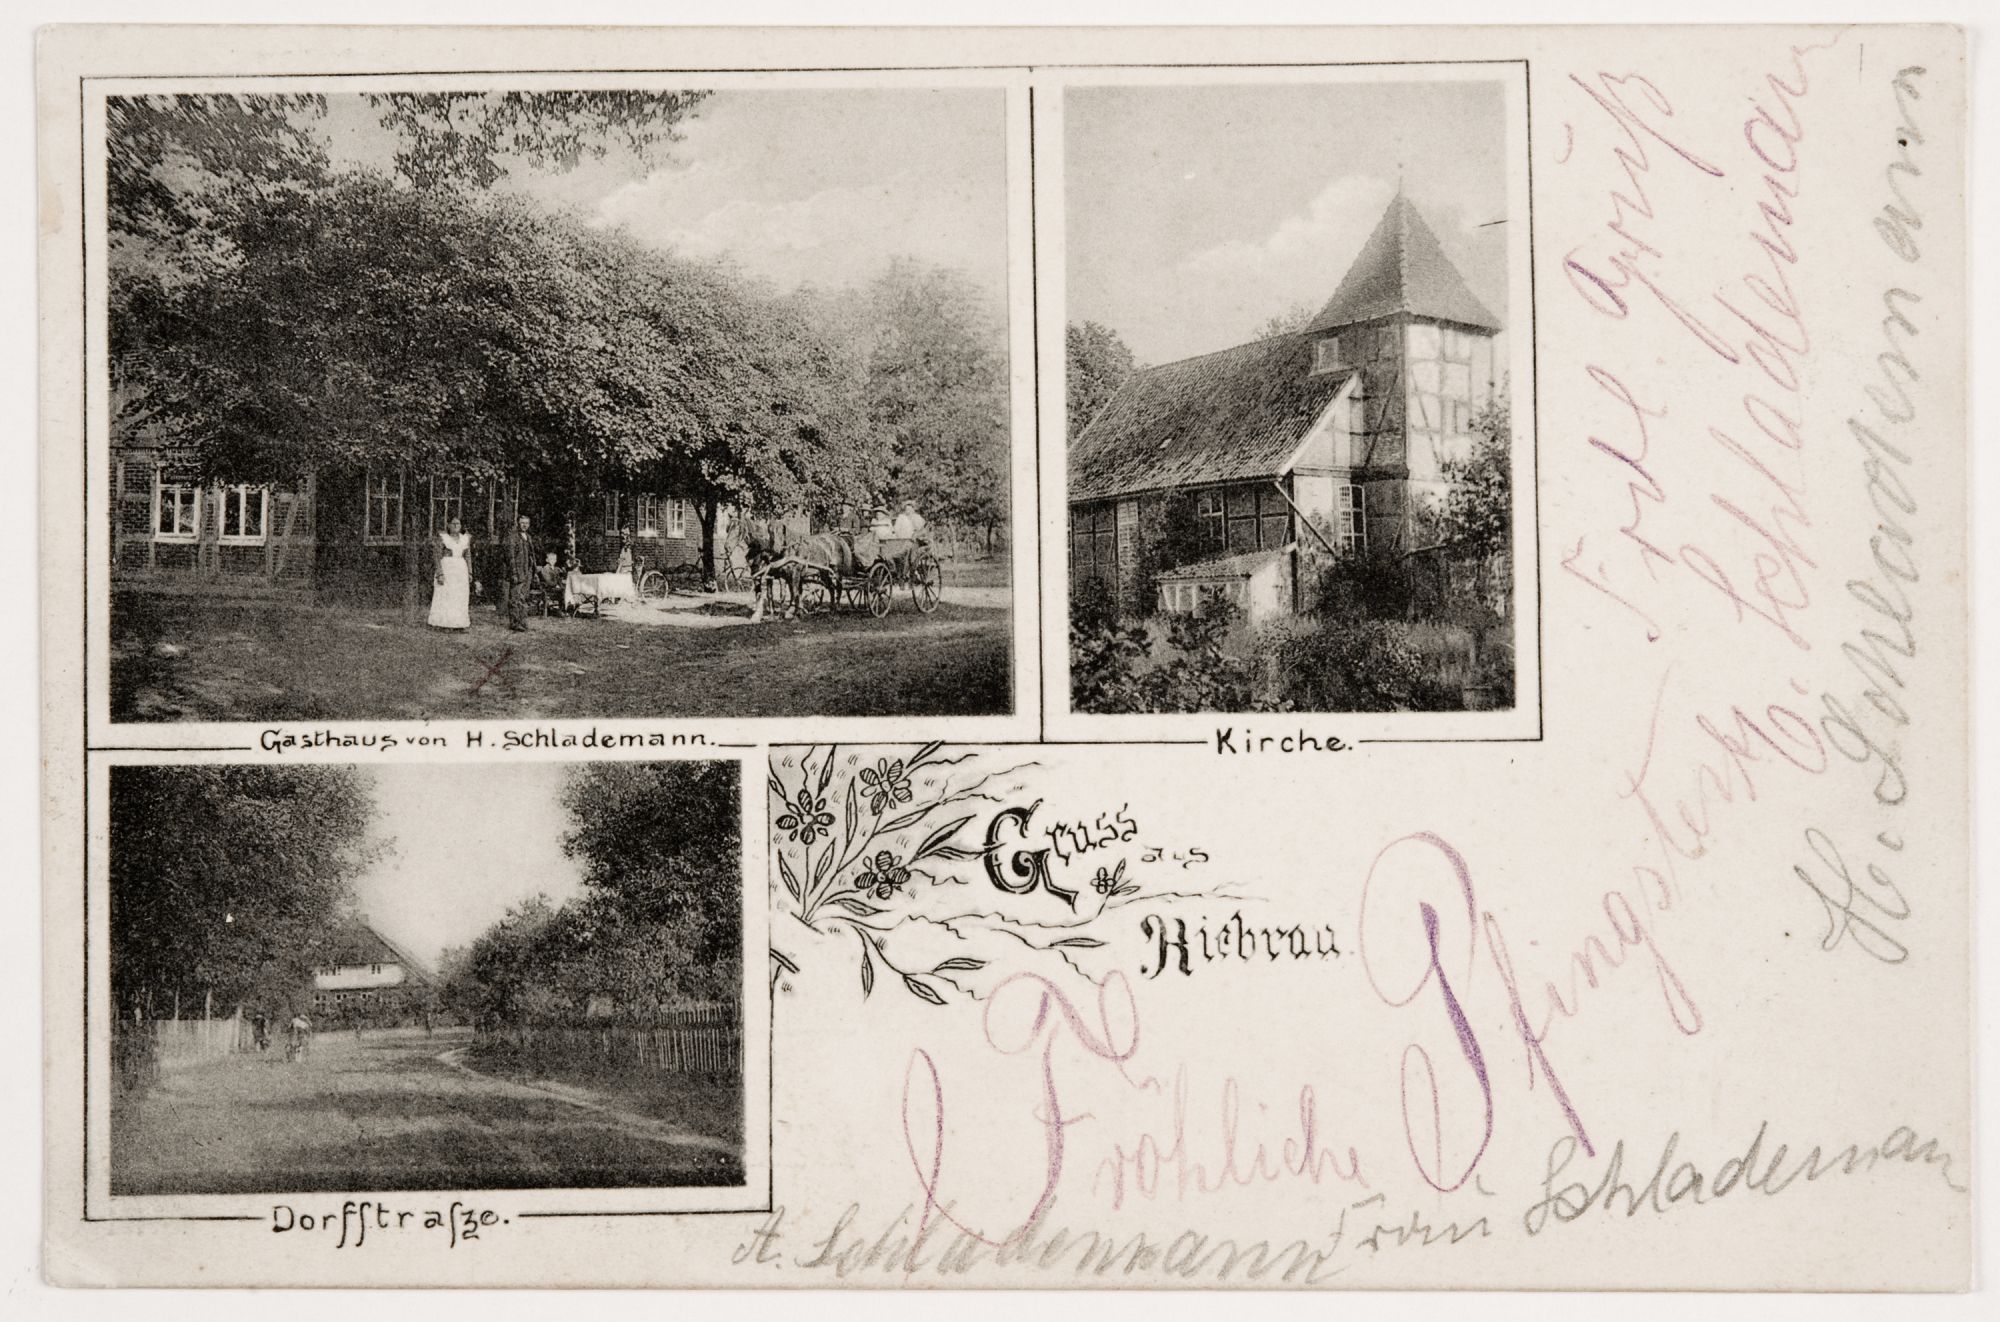 Gasthaus von H. Schlademann.
Kirche.
Dorfstraße.
Gruss
aus
Riebrau.
Fröhliche Pfingsten
Frdl. Gruß
E. Schlademann
H. Schlademann
A. Schlademann
Frau Schlademann